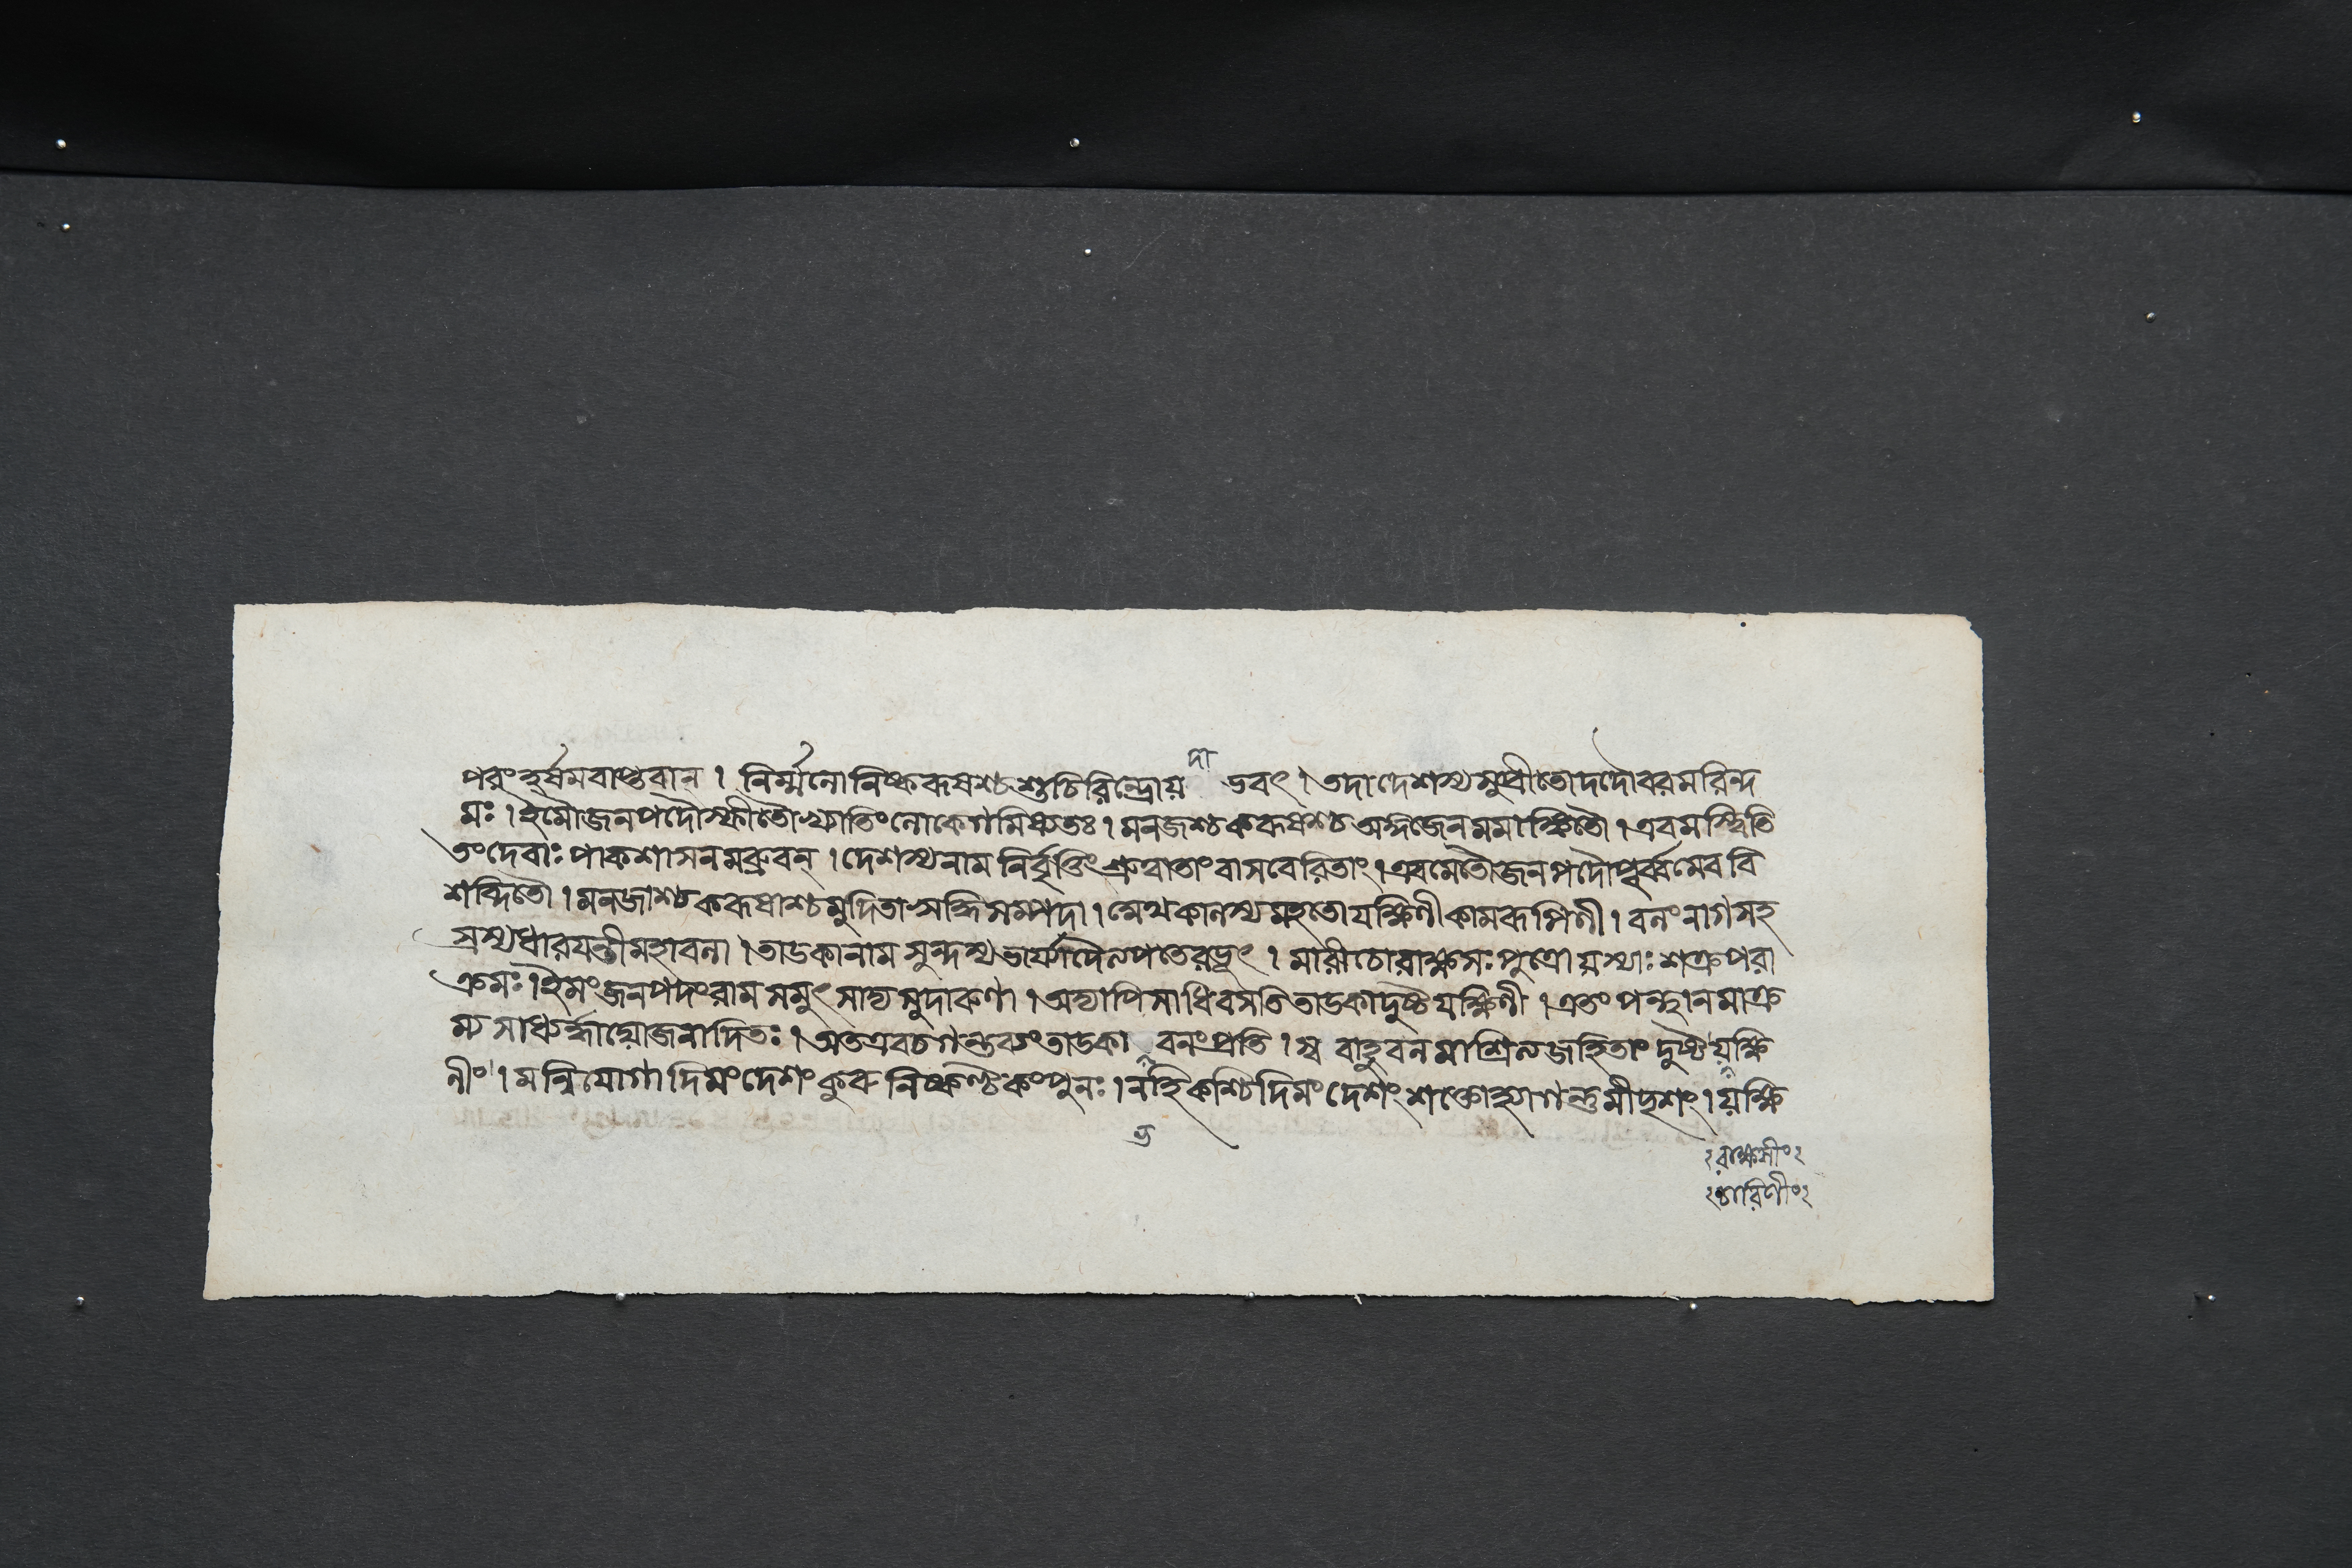 দা
পরং হর্ষমবাপ্তবান্ । নির্ম্মলো নিষ্করূষশ্চ শুচিরিন্দ্রো য় ভবৎ । তদা দেশস্য সুপ্রীতো দদৌ বরমরিন্দ
মঃ । ইমৌ জনপদৌ স্ফীতৌ খ্যাতিং লোকে গমিষ্যতঃ । মলজশ্চ করূষশ্চ অঙ্গজেন মমাঙ্কিতৌ । এবমস্ত্বিতি
তং দেবাঃ পাকশাসনমব্রুবন্ । দেশস্য নাম নির্বৃত্তিং শ্রুত্বা তাং বাসবেরিতাং । এবমেতৌ জনপদৌ পূর্ব্বমেব বি
শব্দিতৌ । মলজাশ্চ করূষাশ্চ মুদিতা ঋদ্ধিসম্পদা । মেথকালস্য মহতো যক্ষিণী কামরূপিণী । বলং নাগসহ
স্রস্য ধারয়ন্তী মহাবলা । তাডকা নাম সুন্দস্য ভার্য্যা দৈত্যপতেরভূৎ । মারীচো রাক্ষসঃ পুত্রো যস্যাঃ শক্রপরা
ক্রমঃ । ইমং জনপদং রাম সমুৎসাদ্য সুদারুণা । অদ্যাপি সাধিবসতি তাডকা দুষ্টযক্ষিণী । এতং পন্থানমাক্র
ম্য সাধ্যর্দ্ধাদ্যোজনাদিতঃ । অতএব চ গন্তব্যং তাডকা বনং প্রতি । স্ব বাহুবলমাশ্রিত্য জহি তাং দুষ্টয়ক্ষি
নীং । মন্নিয়োগাদিমং দেশং কুরু নিষ্কণ্টকং পুনঃ । ন হি কশ্চিদিমং দেশং শক্তো হ্যাগন্তুমীদৃশং । য়ক্ষি
ভ
রাক্ষসীং
চারিণীং